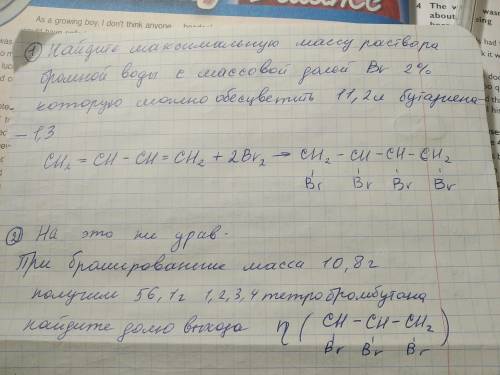 As a growing boy, I don't think anyone
① Найдите максимальную массу раствора
бромной воды с массовой долей Br 2%
которую можно обесцветить 11,2л бутадиена-
-1,3
CH₂ = CH - CH = CH₂ + 2Br₂ → CH₂ - CH - CH - CH₂
Br Br Br Br
② На это же урав-
При бромировании масса 10,8г
получили 56,1г 1,2,3,4 тетробромбутана
найдите долю выхода η ( CH - CH - CH₂ )
Br Br Br